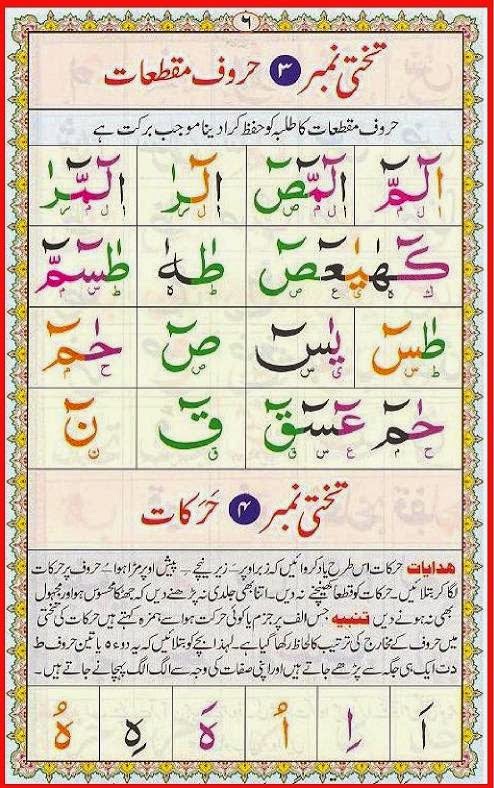 ٦
تختی نمبر ۳ حروف مقطعات
حروف مقطعات کا طلبہ کو حفظ کرا دینا موجب برکت ہے
الٓمّٓ الٓمّٓصٓ الٓرٰ الٓمّٓرٰ
ا ل م ا ل م ص ا ل ر ا ل م ر
كٓهٰيٰعٓصٓ طٰهٰ طٰسٓمّٓ
ك ه ي ع ص ط ه ط س م
طٰسٓ يٰسٓ صٓ حٰمٓ
ط س ي س ص ح م
حٰمٓ عٓسٓقٓ قٓ نٓ
ح م ع س ق ق ن
تختی نمبر ۴ حَرَکات
ھدایات حرکات اس طرح یاد کروائیں کہ زبر اوپر َ زیر نیچے ِ پیش اوپر مڑا ہوا ُ حروف پر حرکات
لگا کر بتلائیں۔ حرکات کو قطعاً کھینچنے نہ دیں۔ اتنا بھی جلدی نہ پڑھنے دیں کہ جھٹکا محسوس ہو اور مجہول
بھی نہ ہونے دیں تنبیہ جس الف پر جزم یا کوئی حرکت ہو اسے ہمزہ کہتے ہیں حرکات کی تختی
میں حروف کے مخارج کی ترتیب کا لحاظ رکھا گیا ہے۔ لہٰذا بچے کو بتلائیں کہ یہ دو ء ہ یا تین حروف ط
د ت ایک ہی جگہ سے پڑھے جاتے ہیں اور اپنی صفات کی وجہ سے الگ الگ پہچانے جاتے ہیں۔
اَ اِ اُ هَ هِ هُ